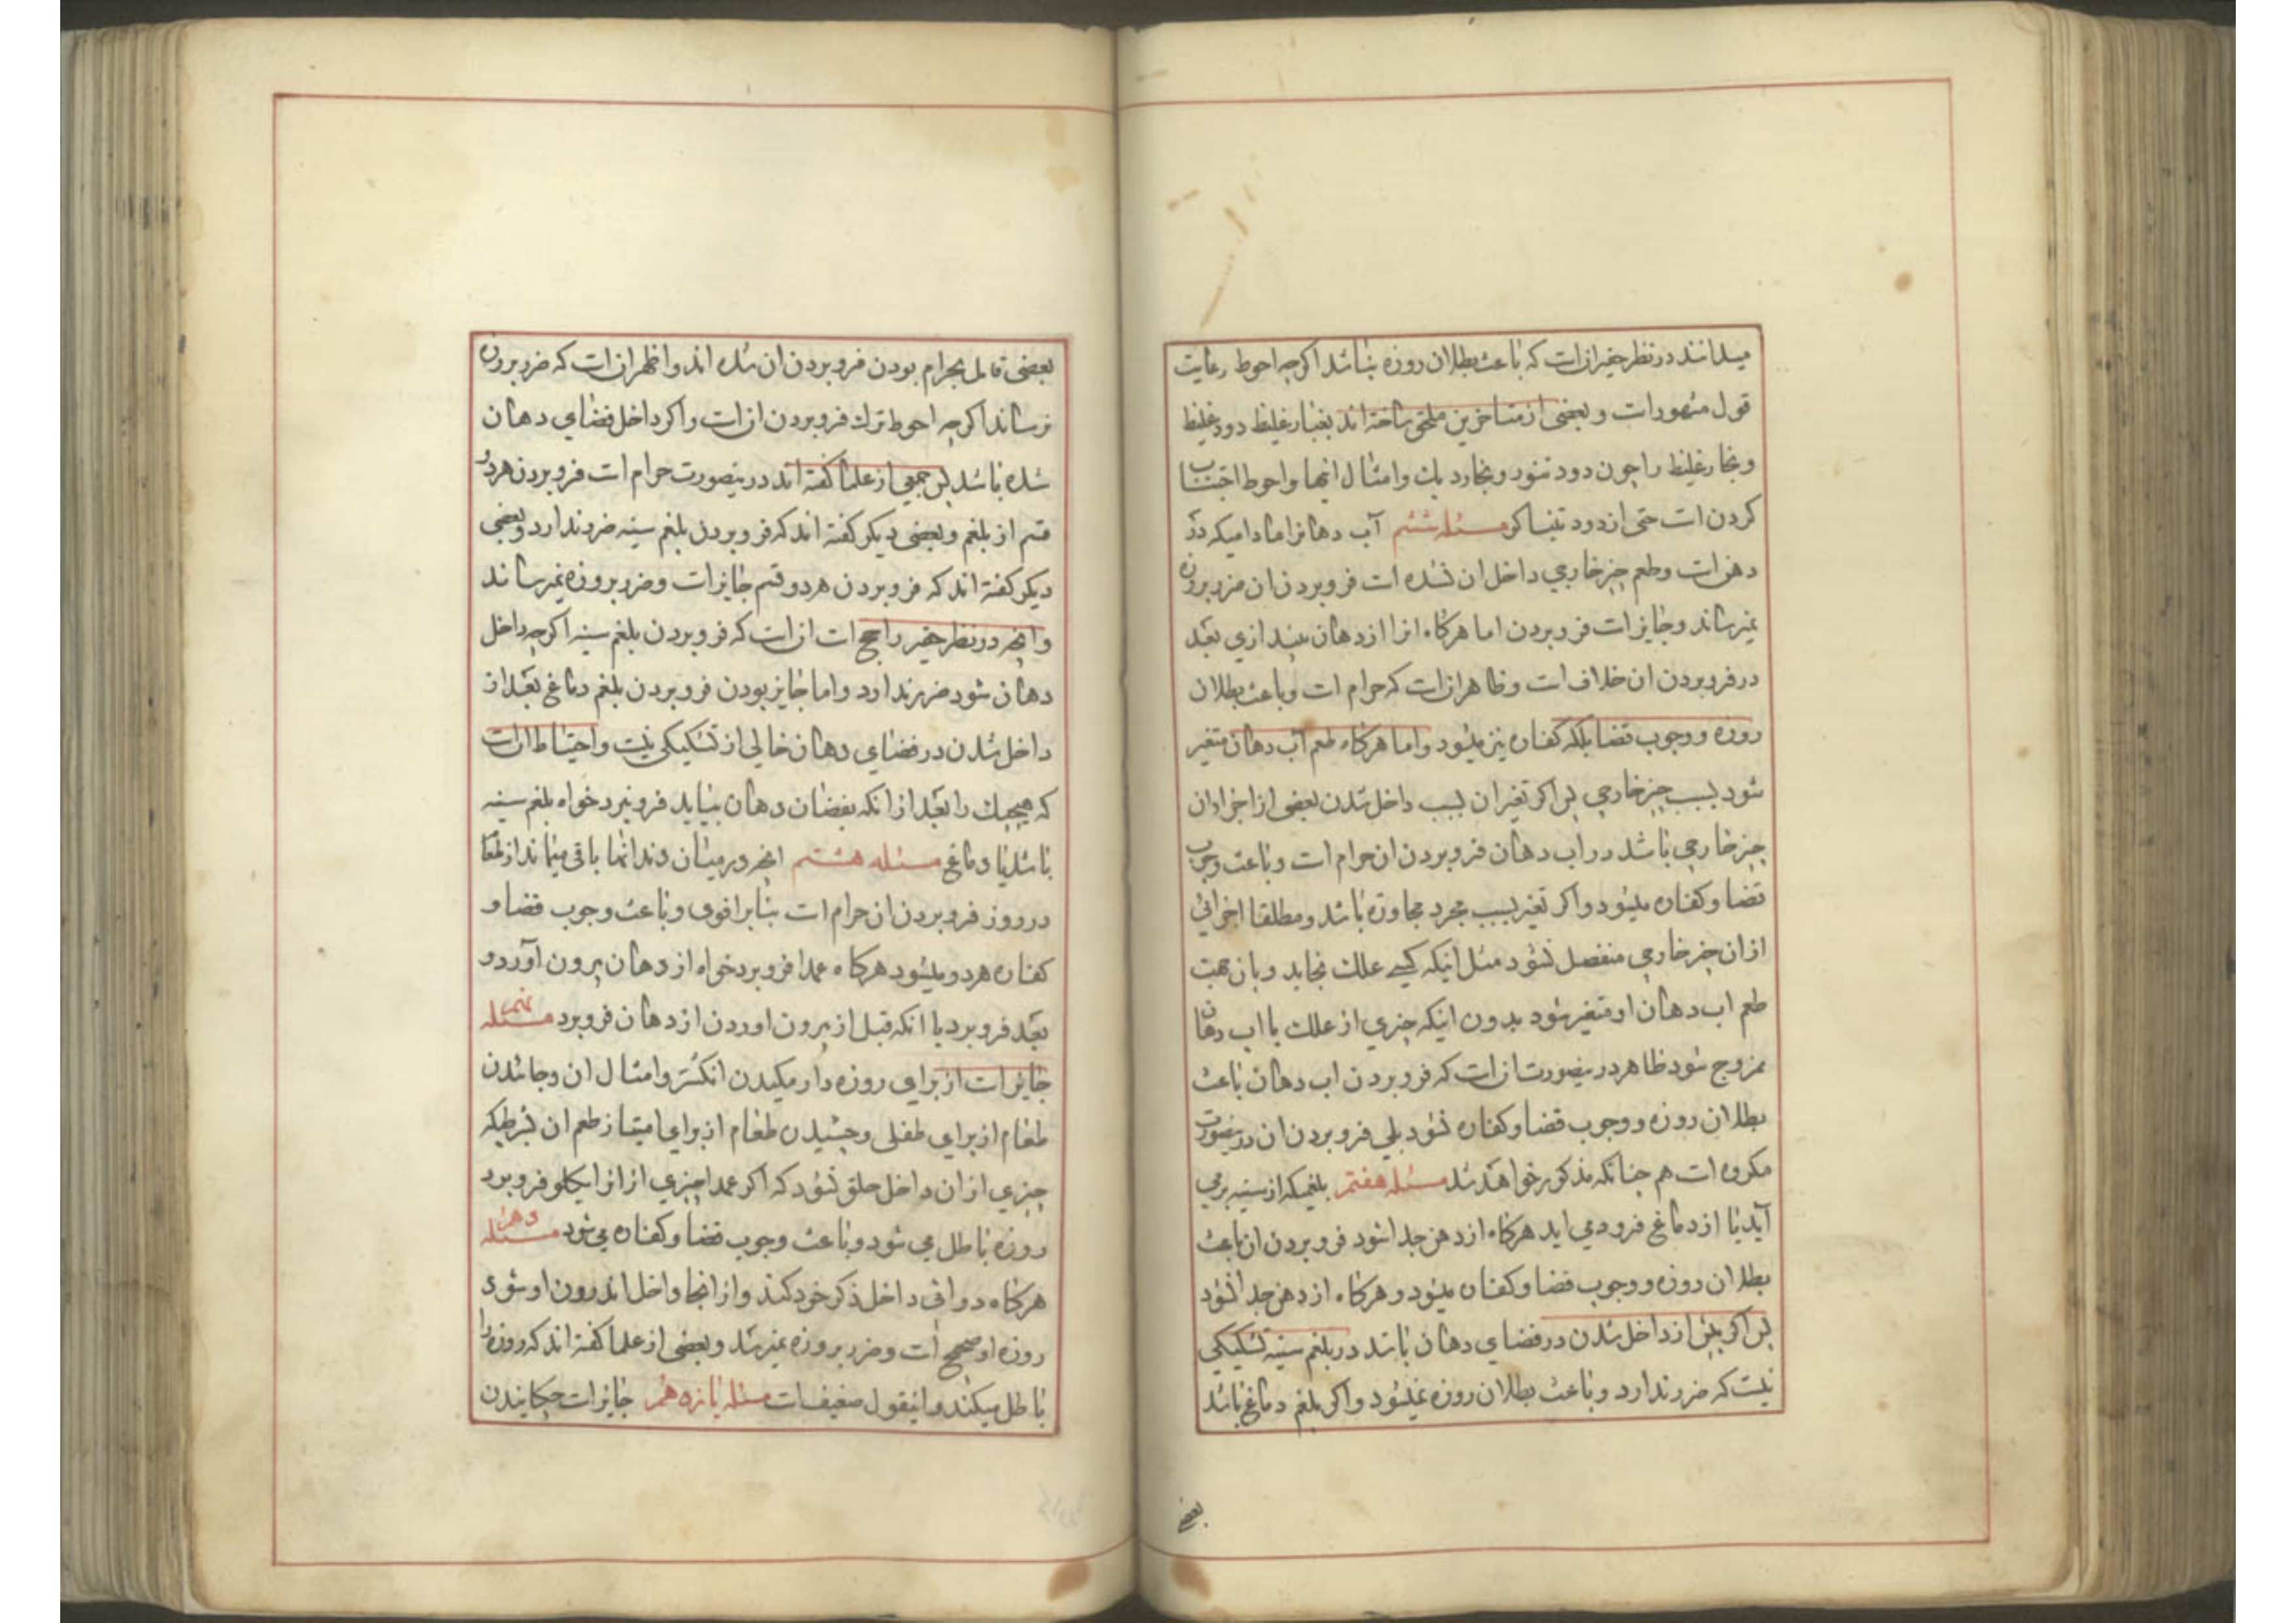 میدانند در نظر حقیر ان است که باعث بطلان روزه نباشد اکرچه احوط رعایت
قول مشهور است و بعضی از متاخرین ملحق ساخته اند بغبار غلیظ دود غلیظ
و بخار غلیظ را چون دود تنور و بخار دیك و امثال انها و احوط اجتناب
کردن است حتی از دود تنباکو مسئله ششم آب دهانرا مادامیکه در
دهن است و طعم چیز خارجی داخل ان نشده است فرو بردن ان ضرر بروزه
نمیرساند و جایز است فرو بردن اما هرکاه انرا از دهان بیندازی بعد
در فرو بردن ان خلاف است و ظاهر ان است که حرام است و باعث بطلان
روزه و وجوب قضا بلکه کفاره نیز میشود و اما هرکاه طعم آب دهان متغیر
شود بسبب چیز خارجی پس اکر تغیر ان بسبب داخل شدن بعضی از اجزاء ان
چیز خارجی باشد در اب دهان فرو بردن ان حرام است و باعث وجوب
قضا و کفاره میشود و اکر تغیر بسبب مجرد مجاورة باشد و مطلقا اجزائی
از ان چیز خارجی منفصل نشود مثل اینکه کسی علك بخاید و بان جهت
طعم اب دهان او متغیر شود بدون اینکه چیزی از علك با اب دهان
ممزوج شود ظاهر در ینصورت ان است که فرو بردن اب دهان باعث
بطلان روزه و وجوب قضا و کفاره نشود بلی فرو بردن ان در ینصورت
مکروه است هم چنانکه مذکور خواهد شد مسئله هفتم بلغمیکه از سینه برمی
آید یا از دماغ فرود می اید هرکاه از دهن جدا شود فرو بردن ان باعث
بطلان روزه و وجوب قضا و کفاره میشود و هرکاه از دهن جدا نشود
پس اکر پیش از داخل شدن در فضای دهان باشد در بلغم سینه تشکیکی
نیست که ضرر ندارد و باعث بطلان روزه نمیشود و اکر بلغم دماغ باشد
بعضی
بعضی قائل بحرام بودن فرو بردن ان شده اند و اظهر ان است که ضرر بروزه
نرساند اکرچه احوط ترك فرو بردن ان است و اکر داخل فضای دهان
شده باشد پس جمعی از علما کفته اند در ینصورت حرام است فرو بردن هر دو
قسم از بلغم و بعضی دیکر کفته اند که فرو بردن بلغم سینه ضرر ندارد و بعضی
دیکر کفته اند که فرو بردن هر دو قسم جایز است و ضرر بروزه نمیرساند
و انچه در نظر حقیر راجح است ان است که فرو بردن بلغم سینه اکرچه داخل
دهان شود ضرر ندارد و اما جایز بودن فرو بردن بلغم دماغ بعد از
داخل شدن در فضای دهان خالی از تشکیکی نیست و احتیاط ان است
که هیچیك را بعد از انکه بفضای دهان بیاید فرو نبرد خواه بلغم سینه
باشد یا دماغ مسئله هشتم انچه در میان دندانها باقی میماند از طعام
در روز فرو بردن ان حرام است بنا بر اقوی و باعث وجوب قضا و
کفاره هر دو میشود هرکاه عمدا فرو برد خواه از دهان بیرون آورد و
بعد فرو برد یا انکه قبل از بیرون اوردن از دهان فرو برد مسئله نهم
جایز است از برای روزه دار مکیدن انکشتر و امثال ان و جائیدن
طعام از برای طفلی و چشیدن طعام از برای امتیاز طعم ان بشرطیکه
چیزی از ان داخل حلق نشود که اکر عمدا چیزی از انرا یکلو فرو برد
روزه باطل می شود و باعث وجوب قضا و کفاره می شود مسئله دهم
هرکاه دوائی داخل ذکر خود کند و از انجا داخل اندرون او شود
روزه او صحیح است و ضرر بروزه نمیرسد و بعضی از علما کفته اند که روزه را
باطل میکند و اینقول ضعیف است مسئله یازدهم جایز است چکانیدن